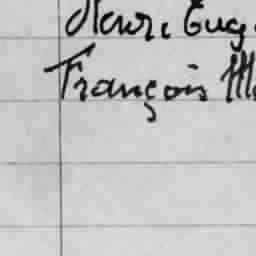 Henri Eug
François M